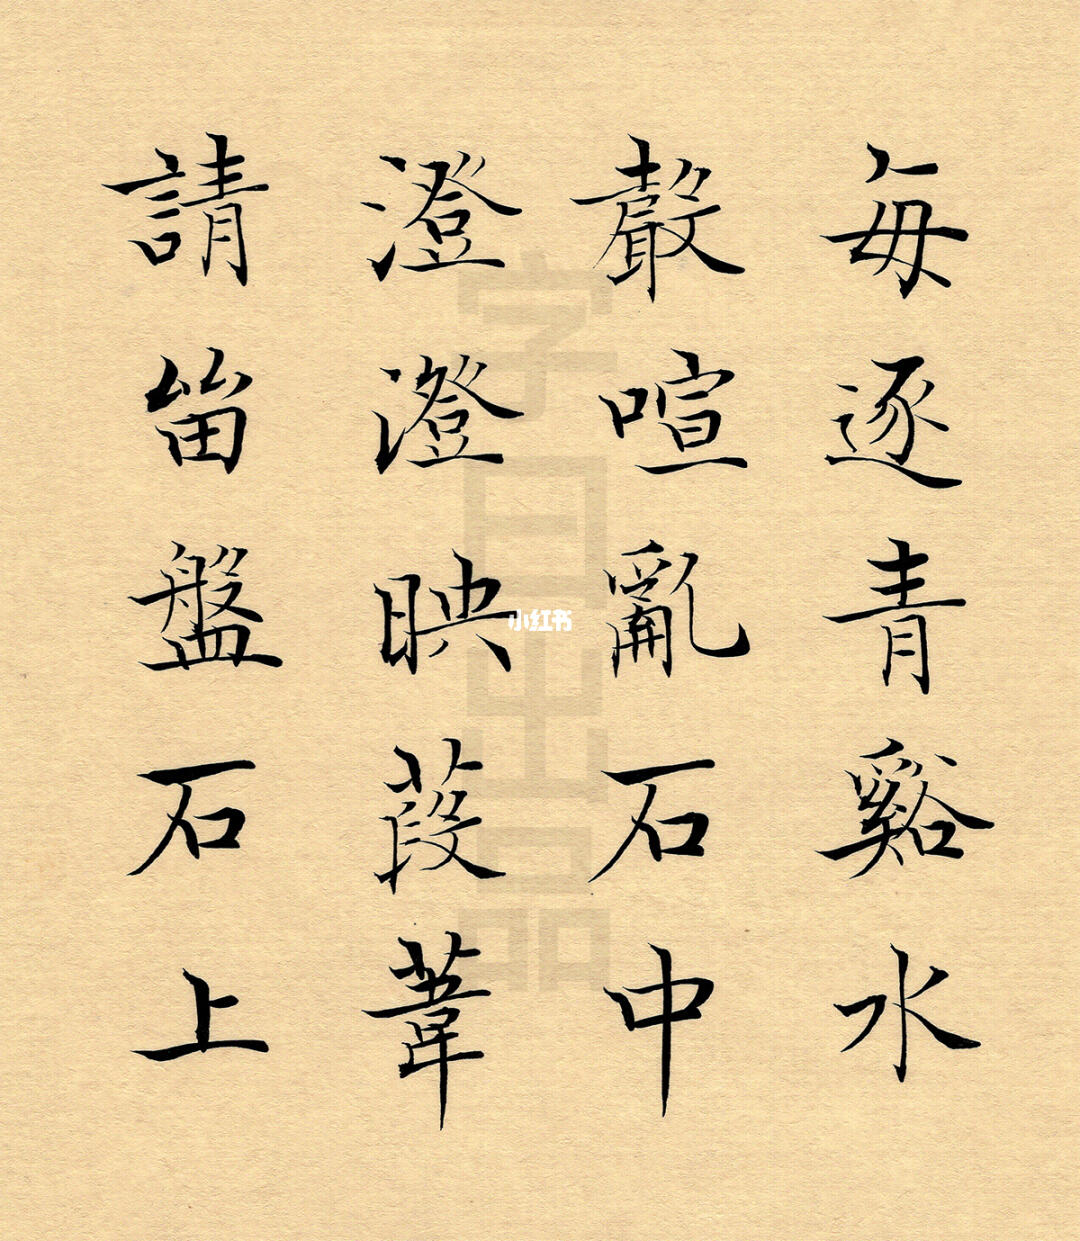 每逐青谿水
聲喧亂石中
澄澄映葭葦
請留盤石上
字日出品
小红书